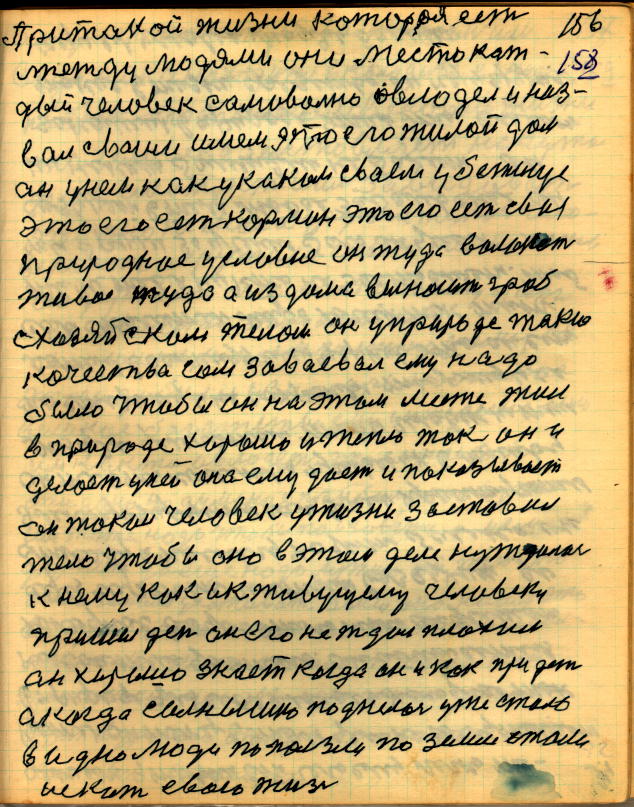 При такой жизни которая ест 156
между людями они место каж- 158
дый человек самоволно овлодел и наз-
вал своим имем это его жилой дом
он у нем как у каком своем убежище
это его ест кормон это его ест своя
природное условие он туда волокет
живое туда а из дома выносит гроб
с хозяйском телом он у природе такие
качества сам зоваевал ему надо
было чтобы он на этом месте жил
в природе хорошо и тепло так он и
делоет у ней она ему дает и показывает
он таким человек у жизни заставил
тело чтобы оно в этом деле нуждалас
к нему как и к живущему человеку
пришел ден он его не ждал плохим
он хорошо знает когда он и как придет
а когда солнышко поднялос уже стало
видно люди поползли по земле стали
искат свою жизн